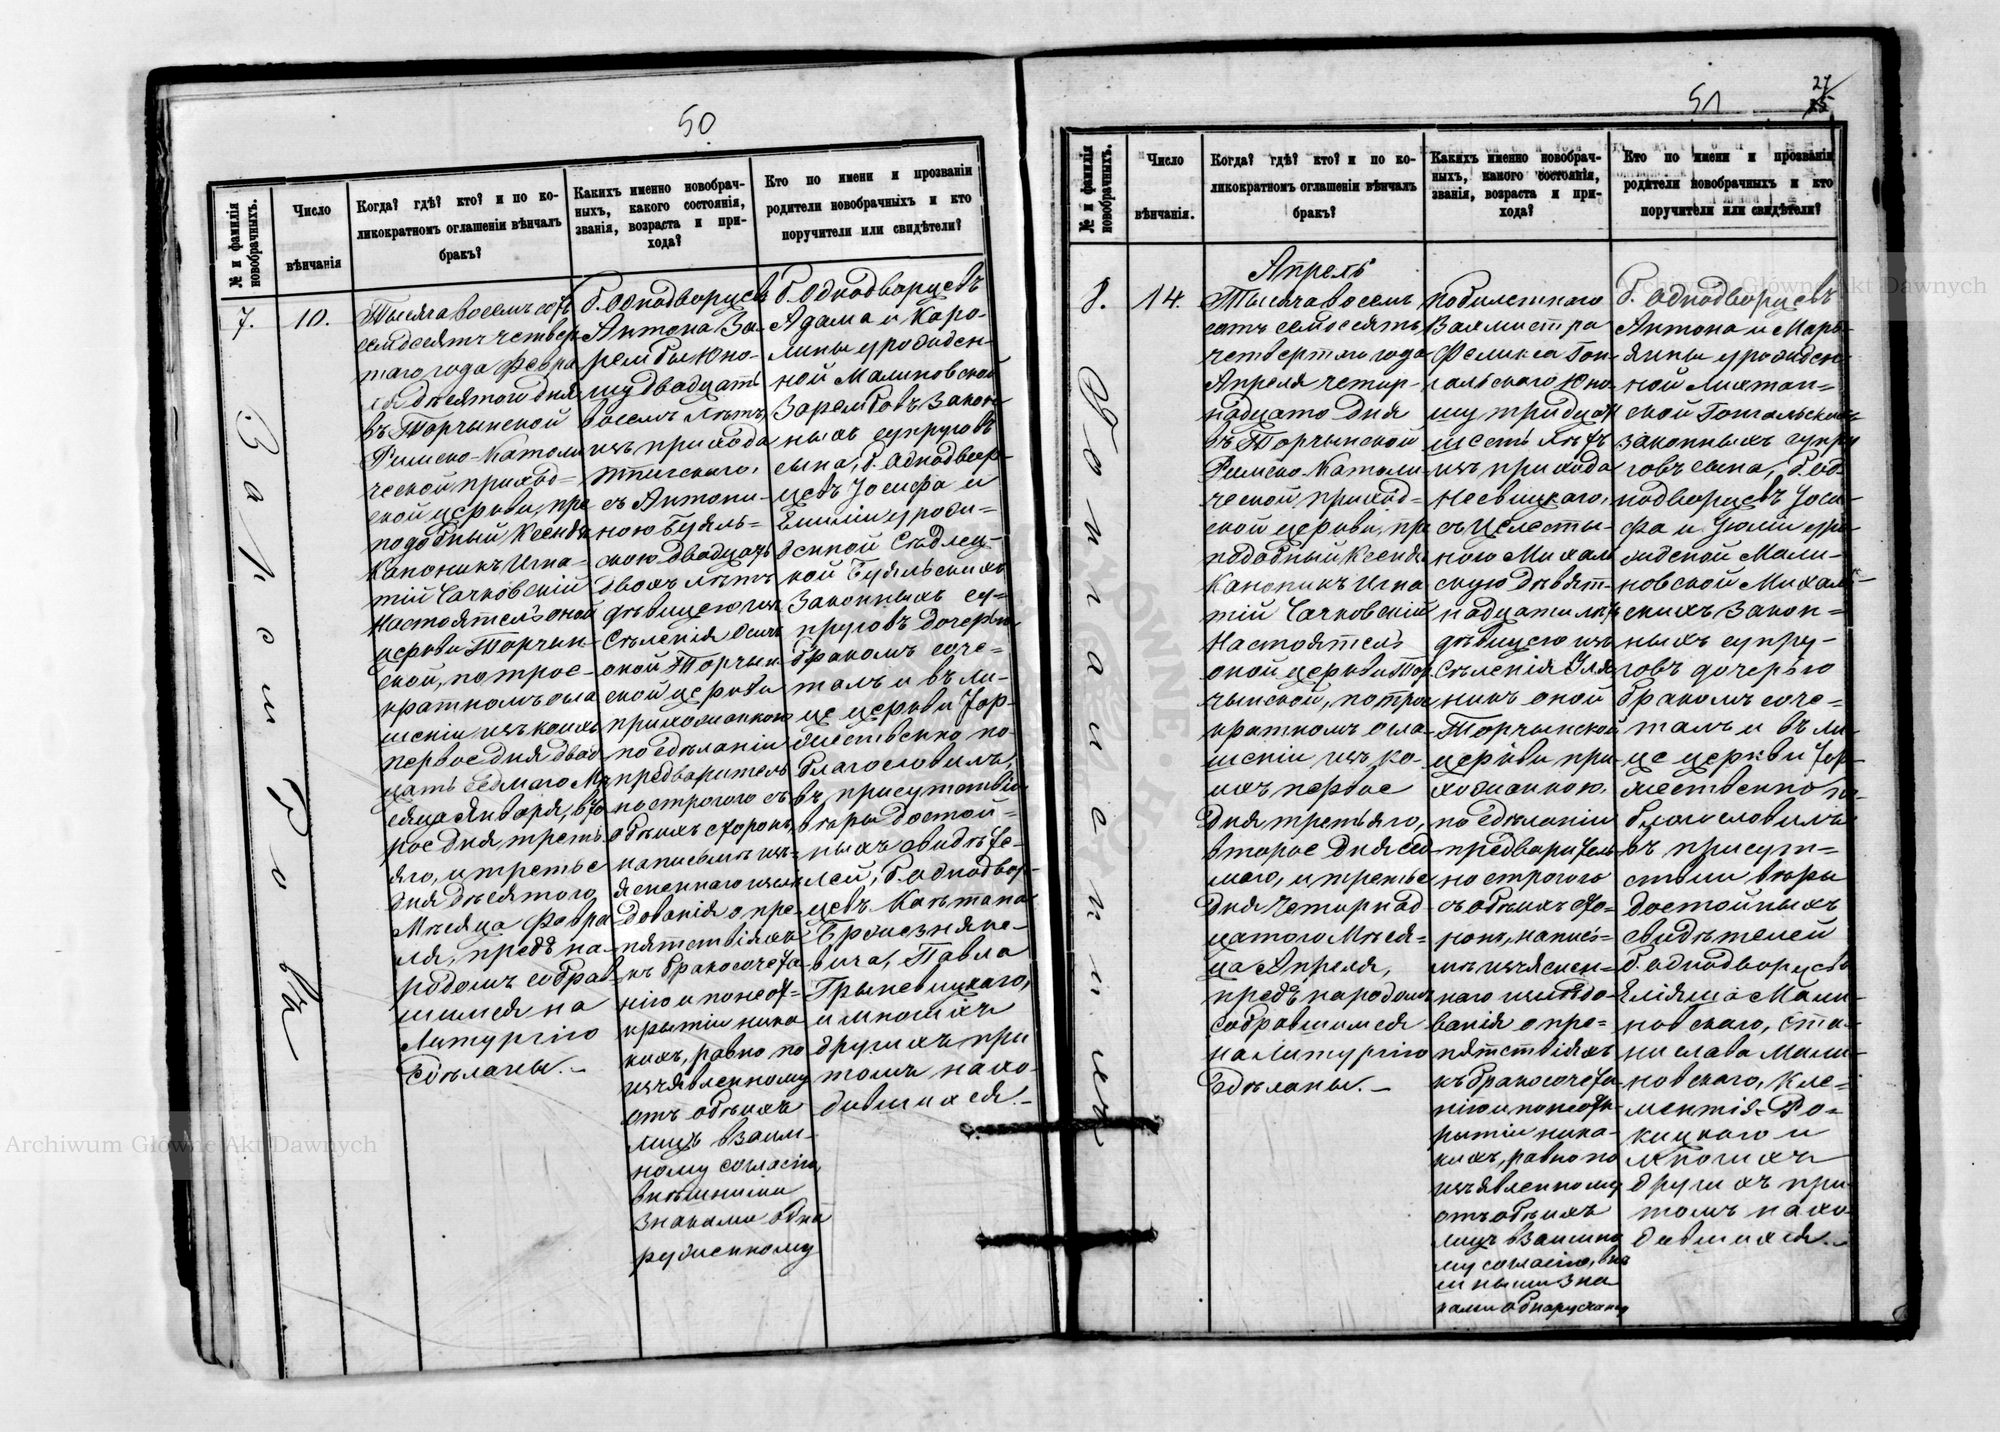 50
№ и фамилія новобрачныхъ.
Число вѣнчанія
Когда? гдѣ? кто? и по ко-
ликократномъ оглашеніи вѣнчалъ
бракъ?
Какихъ именно новобрач-
ныхъ, какого состоянія,
званія, возраста и при-
хода?
Кто по имени и прозванію
родители новобрачныхъ и кто
поручители или свидѣтели?
7.
10.
Тысяча восемъ сотъ
семдесятъ четвер-
таго года Февра
ля десятого дня
въ Торчинской
Римско-Католи
ческой приход-
ской церкви, пре
подобный Ксендзъ
Каноникъ Игна-
тій Сачковскій
Настоятель оной
церкви Торчин-
ской, по трое-
кратномъ огла
шеніи изъ коихъ
первое дня двад
цать седмаго Мѣ
сяца Января, вто
рое дня треть
яго, и третье
дня десятого
Мѣсяца Февра
ля, предъ на-
родомъ собрав
шимся на
Литургію
сдѣланы.-
Б. Однодворцевъ
Антона За-
рембы Юно-
шу двадцать
восемъ лѣтъ
изъ прихода
съ Антони-
ною Бубль-
скою двадцать
двохъ лѣтъ
дѣвицею изъ
Селенія Осьм
оной Торчин
ской церкви
прихожанкою
по сдѣланіи
предваритель
но строгого съ
обѣихъ сторонъ,
на письмѣ изъ-
ясненнаго изслѣ
дованія о пре-
пятствіяхъ
къ бракосочета
нію и по неот-
крытіи ника
кихъ, равно по
изъявленному
отъ обѣихъ
лицъ взаим-
ному согласію,
внѣшними
знаками обна
руженному
Б. Однодворцевъ
Адама и Каро-
лины урожден-
ной Малиновской
Зарембовъ Закон
ныхъ супруговъ
сына, Б. Однодвор-
цевъ Іосифа и
Емиліи урож-
денной Съдлец-
кой Бубльскихъ
Законныхъ су-
пруговъ дочерью
бракомъ соче-
талъ и въ ли-
це церкви Тор-
жественно по-
благословилъ,
въ присутствіи
вѣры достой-
ныхъ свидѣте-
лей, Б. Однодвор-
цевъ Каэтана
вича, Павла
Гриневицкаго,
и многихъ
другихъ при
томъ нахо-
дившихся.-
51
27
№ и фамилія новобрачныхъ.
Число вѣнчанія.
Когда? гдѣ? кто? и по ко-
ликократномъ оглашеніи вѣнчалъ
бракъ?
Какихъ именно новобрач-
ныхъ, какого состоянія,
званія, возраста и при-
хода?
Кто по имени и прозванію
родители новобрачныхъ и кто
поручители или свидѣтели?
8.
14.
Апрель
Тысяча восемъ
сотъ семдесятъ
четвертаго года
Апреля четыр-
надцато дня
въ Торчинской
Римско-Католи
ческой приход-
ской церкви, пре
подобный Ксендзъ
Каноникъ Игна
тій Сачковскій
Настоятель
оной церкви Тор
чинской, по трое
кратномъ огла
шеніи изъ ко-
ихъ первое
дня третьяго,
второе дня сед
маго, и третье
дня четырнад
цатого Мѣся-
ца Апреля,
предъ народомъ
собравшимся
на Литургію
сдѣланы.-
по билетнаго
Вахмистра
Феликса Гон
гальского Юно
шу тридцать
шесть лѣтъ
изъ прихода
Несвицкаго,
съ Целести-
ною Михал
скую девят-
надцати лѣтъ
дѣвицею изъ
Селенія Уля
никъ оной
Торчинской
церкви при-
хожанкою.
по сдѣланіи
предваритель
но строгого
съ обѣихъ сто-
ронъ, на пись-
мѣ изъяснен-
наго изслѣдо-
ванія о пре-
пятствіяхъ
къ бракосочета
нію и по неотк
рытіи ника-
кихъ, равно по
изъявленному
отъ обѣихъ
лицъ взаимно
му согласію, внѣ
шными зна
ками обнаружену
Б. Однодворцевъ
Антона и Марь-
янны урожден-
ной Лихтан-
ской Гонгальскихъ
законныхъ супру
говъ сына, Б. од-
нодворцевъ Іоси-
фа и Юліи уро
жденой Мали-
новской Михал-
скихъ закон-
ныхъ супру-
говъ дочерью
бракомъ соче-
талъ и въ ли-
це церкви Тор-
жественно по-
благословилъ
въ присут-
ствіи вѣры
достойныхъ
свидѣтелей
Б. Однодворцевъ
Еліяша Мали-
новскаго, Ста-
нислава Мали-
новскаго, Кле-
ментія Ро-
кицкаго и
многихъ
другихъ при
томъ нахо
дившихся.-
Archiwum Główne Akt Dawnych
Archiwum Główne Akt Dawnych